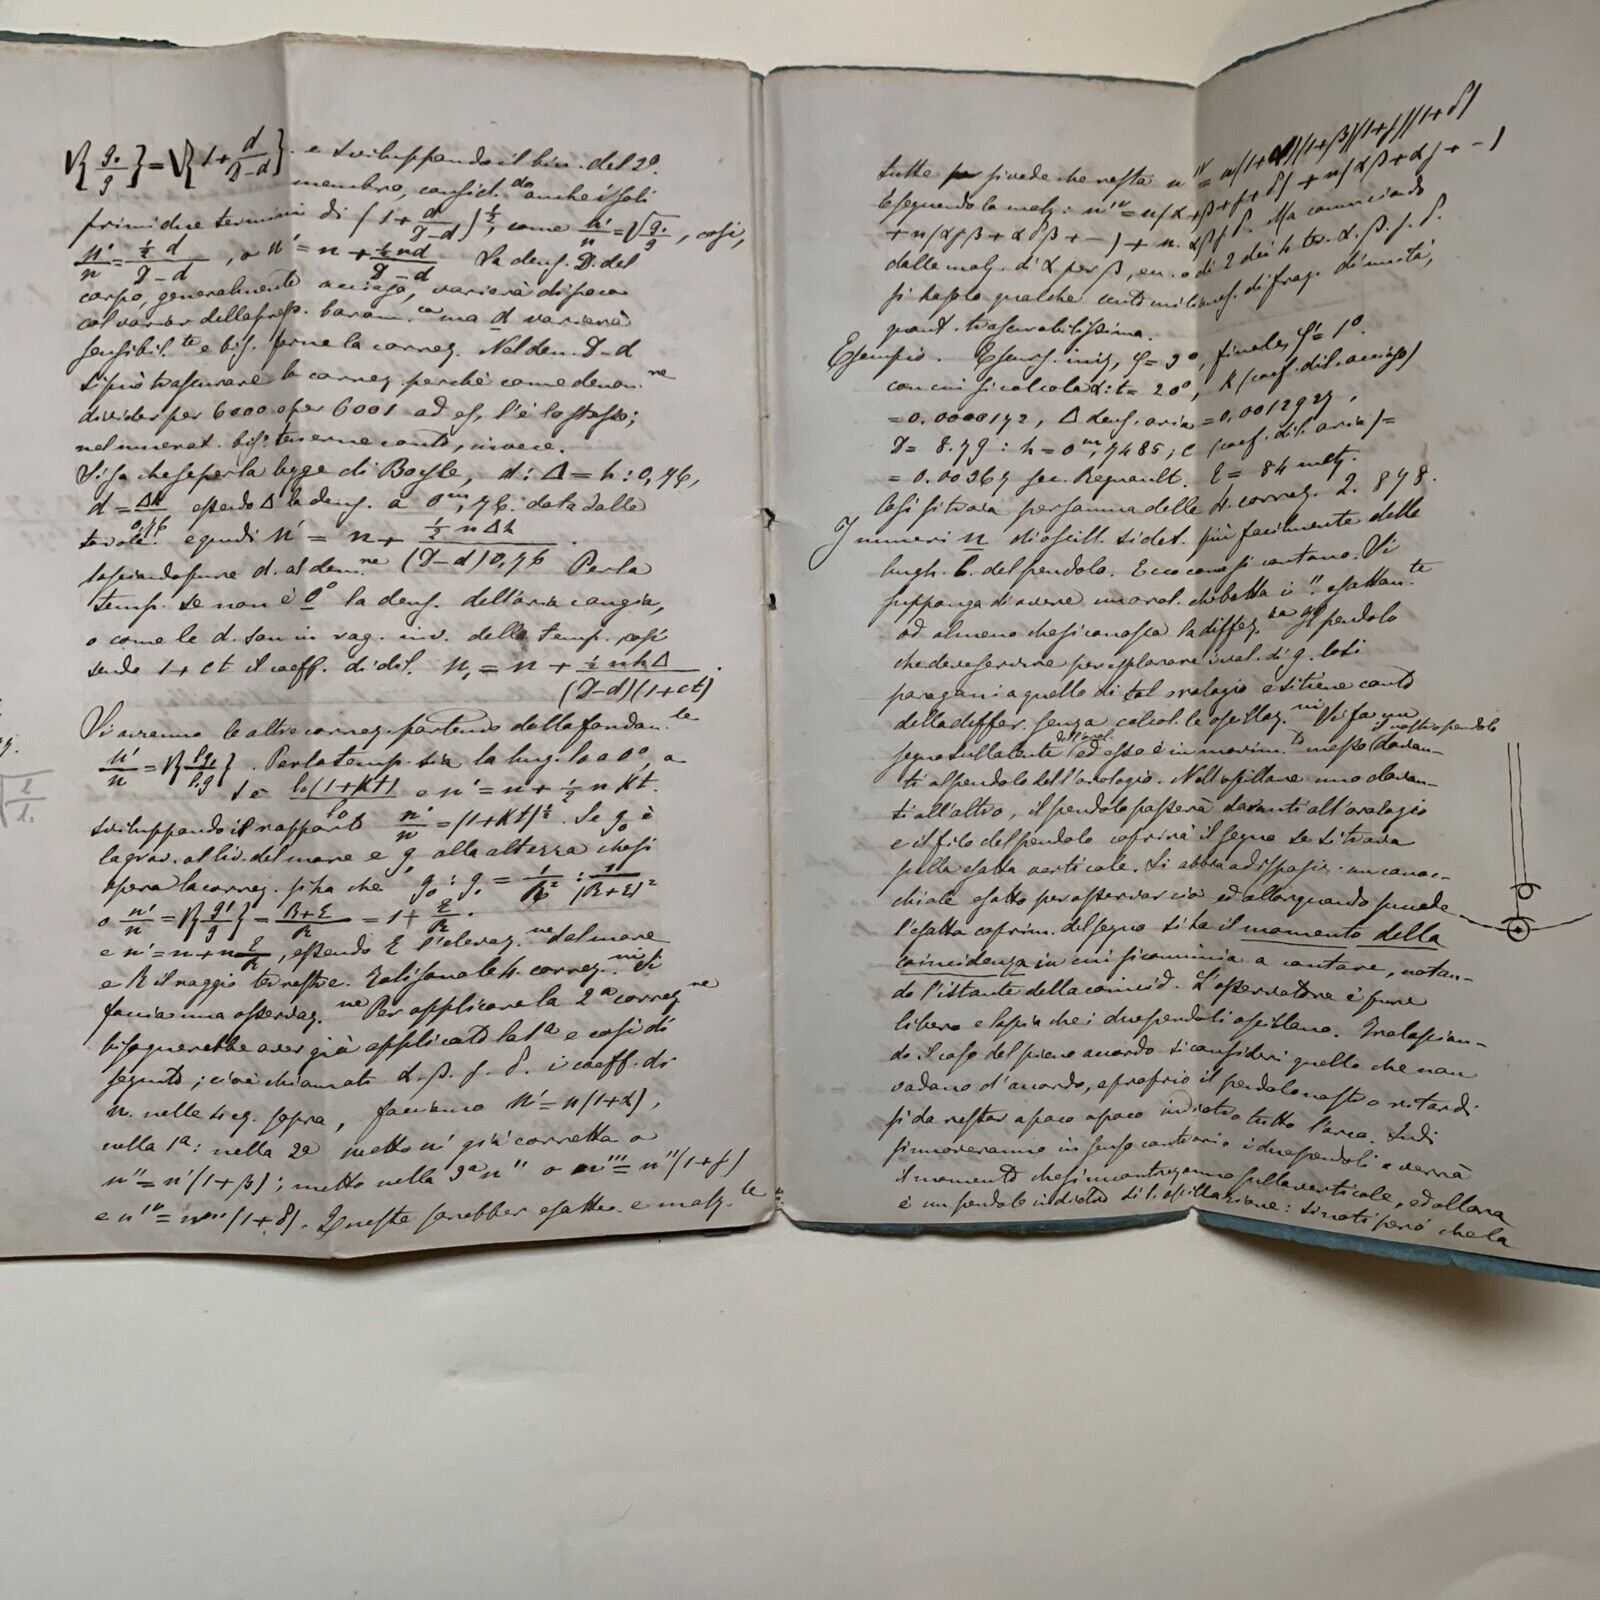 √{g₀/g} = √{1+d/(D-d)} . e sviluppando il bin. del 2º
membro, consid.do anche i soli
primi due termini di (1+d/(D-d))^½, come n'/n = √g₀/g, così,
n'/n = ½d/(D-d), o n' = n + ½nd/(D-d). La dens. D. del
corpo, generalmente acciajo, varierà di poco
col variar della press. barom.ca ma d varierà
sensibil.te e bis. farne la correz. Nel den. D-d
si può trascurare la correz. perchè come denom.re
divider per 6000 o per 6001 ad es, l'è lo stesso;
nel numerat. bis. tenerne conto, invece.
Si sa che per la legge di Boyle, d : Δ = h : 0,76,
d = Δh/0,76 essendo Δ la dens. a 0m,76. data dalle
tavole. e quindi n' = n + ½nΔh/(D-d)0,76 .
lasciando pure d. al den.re Per la
temp. se non è 0º la dens. dell'aria cangia,
o come le d. son in rag. inv. delle temp. così
sendo 1+ct il coeff. di dil. n, = n + ½nhΔ/(D-d)(1+ct) .
Si avranno le altre correz. partendo dalla fondam.le
n'/n = √{lg,/l,g} . Per la temp. sia la lung. l₀ a 0º, a
t è l₀(1+Kt)/l₀ e n' = n + ½ n Kt.
sviluppando il rapporto n'/n = (1+Kt)^½. Se g₀ è
la grav. al liv. del mare e g, alla altezza che si
opera la correz. si ha che g₀ : g, = 1/R² : 1/(R+E)²
o n'/n = √{g'/g} = R+E/R = 1+E/R.
e n' = n + nE/R, essendo E l'elevaz.ne dal mare
e R il raggio terrestre. Tali sono le 4. correz.ni Si
faccia una osservaz.ne Per applicare la 2ª correz.ne
bisognerebbe aver già applicato la 1ª e così di
seguito; cioè chiamati α. β. γ. δ. i coeff. di
n. nelle 4 eq. sopra, facciamo n' = n(1+α),
nella 1ª: nella 2ª metto n' già corretta o
n'' = n'(1+β); metto nella 3ª n'' o n''' = n''(1+γ)
e nIV = n'''(1+δ). Queste sarebber esatte e molt.te
tutte si vede che resta nIV = n(1+α)(1+β)(1+γ)(1+δ)
Eseguendo la molt: nIV = n(α+β+γ+δ) + n(αβ+αγ+--)
+ n(αγβ+αδβ+--) + n. αβγδ. Ma cominciando
dalla molt. di α per β, o di 2 dei 4 te. α. β. γ. δ.
si ha solo qualche centomilionesi. di fraz. d'unità,
quant. trascurabilissima.
Esempio. Escurs. iniz, φ = 3º, finale, φ' = 1º.
con cui si calcola α: t = 20º, K (coef. dil. acciajo)
= 0.0000172, Δ dens. aria = 0,0012927,
D = 8.79 : h = 0m,7485; c (coef. dil. aria) =
= 0.00367 sec. Regnault. E = 84 met.
Così si trova per somma delle 4. correz. 2. 878.
I numeri n di oscill. si det. più facilmente delle
lungh. l. del pendolo. Ecco come si contano. Si
supponga di avere un orol. che batta i 1'' esattam.te
od almeno che si conosca la differ.za al pendolo
che deve servire per esplorare i val. di g. Così
paragoni a quello di tal orologio e si tiene conto
della differ. senza calcol. le oscillaz.ni Si fa un
segno sulla lente dell'orol. ed esso è in movim.to messo il nostro pendolo davan-
ti al pendolo dell'orologio. Nell'oscillare uno davan-
ti all'altro, il pendolo passerà davanti all'orologio
e il filo del pendolo coprirà il segno se si trova
sulla esatta verticale. Si abbia a disposiz. un canoc-
chiale esatto per osservar ciò ed allorquando succede
l'esatta coprim. del segno si ha il momento della
coincidenza in cui si comincia a contare, notan-
do l'istante della coincid. L'osservatore è pure
libero e lascia che i due pendoli oscillano. Tralascian-
do il caso del pieno accordo si consideri quello che non
vadano d'accordo, e proprio il pendolo nostro ritardi
sì da restar a poco a poco indietro tutto l'arco. Indi
si moveranno in senso contrario i due pendoli e verrà
il momento che s'incontreranno sulla verticale, ed allora
è un pendolo indietro di 1. oscillazione: si noti però che la